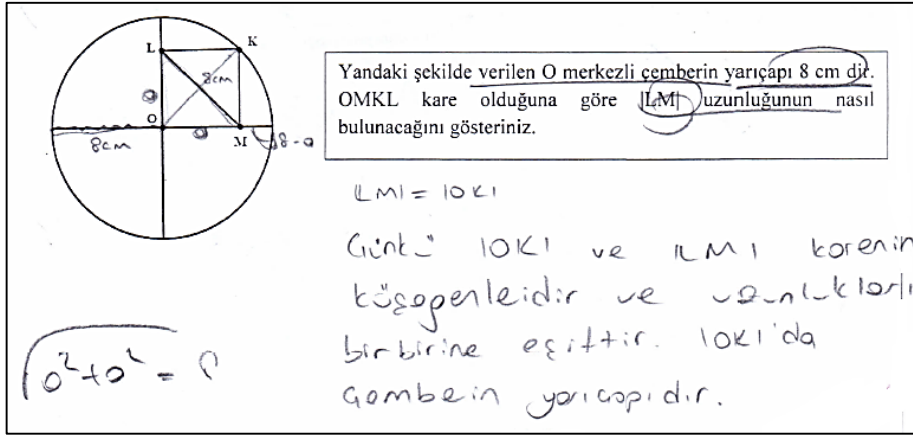 L
K
8cm
Yandaki şekilde verilen O merkezli çemberin yarıçapı 8 cm dir.
OMKL kare olduğuna göre |LM| uzunluğunun nasıl
bulunacağını gösteriniz.
a
O
a
M
8-a
8cm
|LM| = |OK|
Çünkü |OK| ve |LM| karenin
köşegenleidir ve uzunlukları
birbirine eşittir. |OK|'da
Çembein yarıçapıdır.
a²+a² =